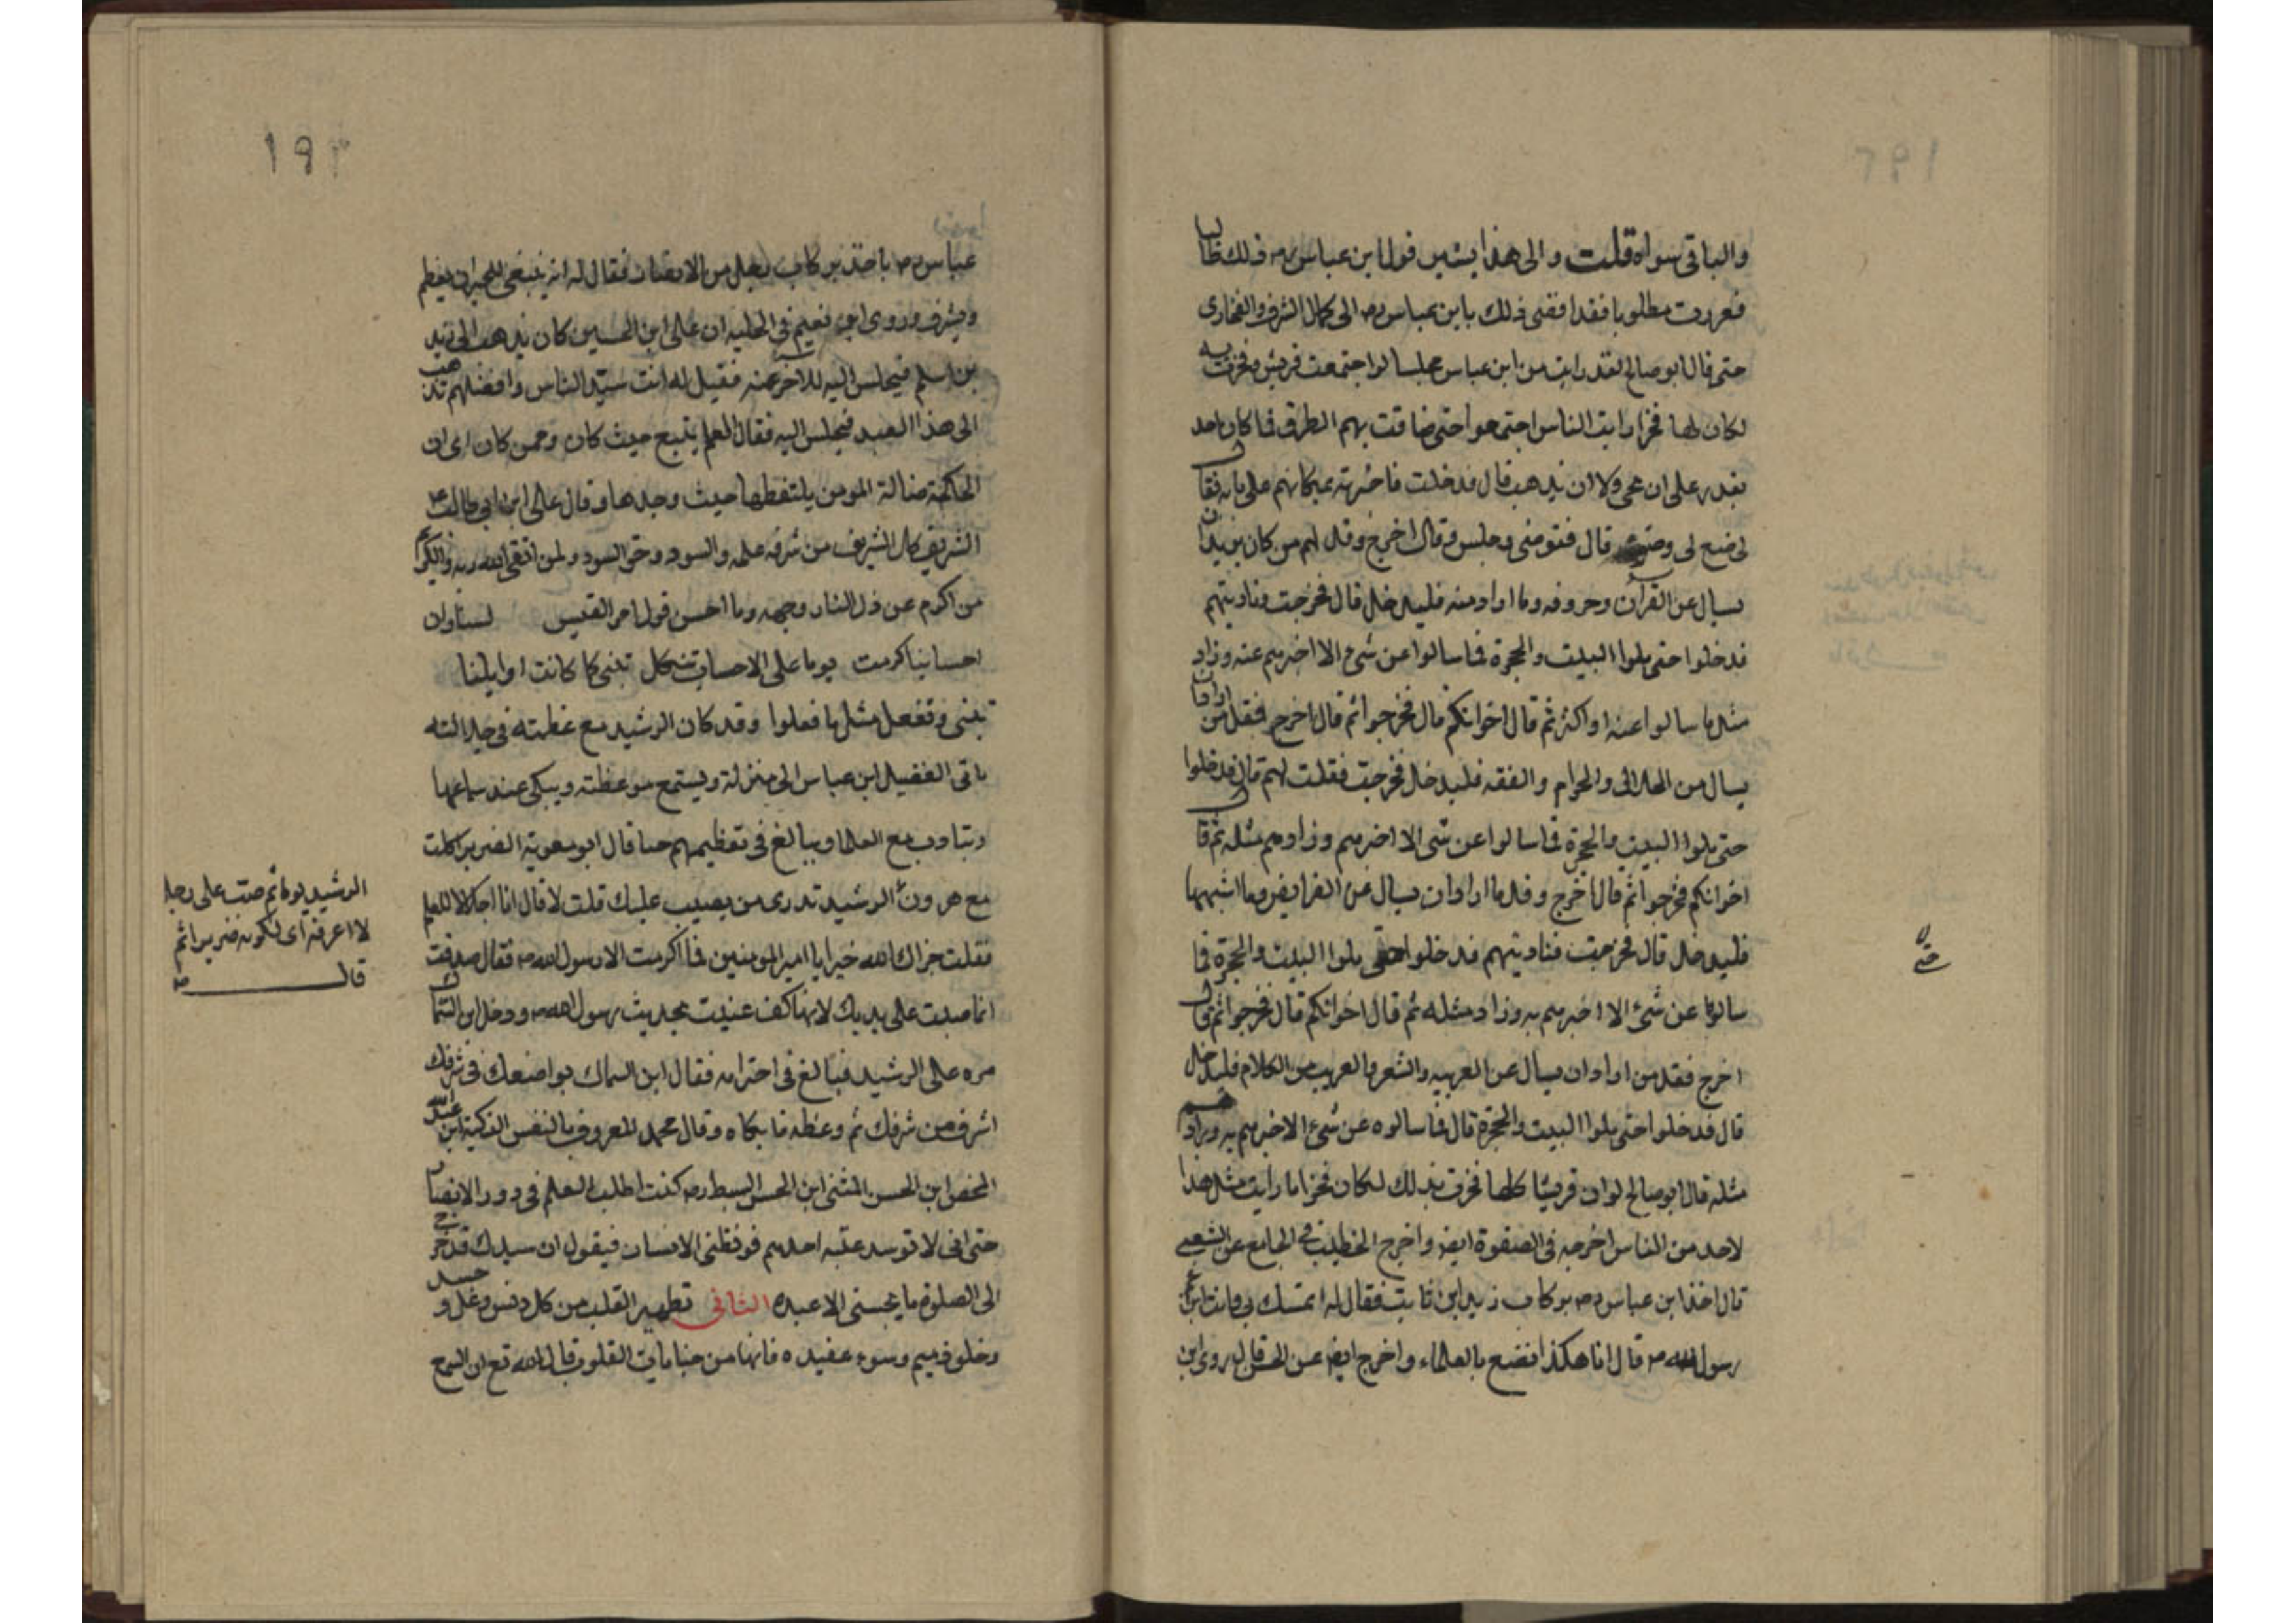 والباقي سواه قلت والى هذا يشير قول ابن عباس رض ذلك طالبا
فعززت مطلوبا فقد افضى ذلك بابن عباس رض الى كمال الشرف والفخار
حتى قال ابو صالح لقد رايت من ابن عباس مجلسا لو اجتمعت قريش وفخرت به
لكان لها فخرا رايت الناس اجتمعوا حتى ضاقت بهم الطرق فما كان احد
يقدر على ان يجي ولا ان يذهب قال فدخلت فاخبرته بمكانهم على بابه فقال
لي ضع لي وضوء قال فتوضى وجلس وقال اخرج وقل لهم من كان يريد ان
يسال عن القرآن وحروفه وما اراد منه فليدخل قال فخرجت وناديتهم
فدخلوا حتى ملوا البيت والحجرة فما سالوا عن شيء الا اخبرهم عنه وزاد
مثل ما سالوا عنه او اكثر ثم قال اخوانكم قال فخرجوا ثم قال اخرج فقل من اراد ان
يسال من الحلال والحرام والفقه فليدخل فخرجت فقلت لهم قال فدخلوا
حتى ملوا البيت والحجرة فما سالوا عن شي الا اخبرهم وزادهم مثله ثم قال
اخوانكم فخرجوا ثم قال اخرج وقل من اراد ان يسال عن الفرايض وما اشبهها
فليدخل قال فخرجت فناديتهم فدخلوا حتى ملوا البيت والحجرة فما
سالوا عن شيء الا اخبرهم به وزاد مثله ثم قال اخوانكم قال فخرجوا ثم قال
اخرج فقل من اراد ان يسال عن العربيه والشعر والغريب من الكلام فليدخل
قال فدخلوا حتى ملوا البيت والحجرة قال فما سالوه عن شيء الا اخبرهم به وزادهم
مثله قال ابو صالح لو ان قريشا كلها فخرت بذلك لكان فخرا ما رايت مثل هذا
لاحد من الناس اخرجه في الصفوة ايضا واخرج الخطيب في الجامع عن الشعبي
قال اخذ ابن عباس رض بركاب زيد ابن ثابت فقال له اتمسك لي وانت ابن عم
رسول الله ص قال انا هكذا نصنع بالعلماء واخرج ايضا عن الحسن قال روى ابن
١٩٣
عباس رض ياخذ بركاب رجل من الانصار فقال له انه ينبغي للحبر ان يعظم
ويشرف وروى ابو نعيم في الحليه ان على ابن الحسين كان يذهب الى زيد
بن اسلم فيجلس اليه فقيل له انت سيد الناس وافضلهم تذهب
الى هذا العبد فيجلس اليه فقال العلم يتبع حيث كان وممن كان اى ان
الحاكمة ضالة المومن يلتقطها حيث وجدها وقال على ابن ابى طالب
الشريف كل الشريف من شرفه علمه والسود حق السود ولمن اتقى الله ربه والكريم
من اكرم عن ذل النار وجهه وما احسن قول امر القيس لسنا وان
احسابنا كرمت يوما على الاحساب نتكل نبنى كما كانت اوايلنا
تبنى ونفعل مثل ما فعلوا وقد كان الرشيد مع عظمته في جلالته
ياتى الفضيل ابن عباس الى منزلة ويستمع موعظته ويبكى عند سماعها
ويتادب مع العلما ويبالغ في تعظيمهم قال ابو معوية الضرير اكلت
مع هرون الرشيد تدرى من يصيب عليك قلت لا قال انا اجلالا للعلم
فقلت جزاك الله خيرا يا امير المومنين فما اكرمت الا رسول الله ص فقال صدقت
انما صبت على يديك لانها كف عنيت بحديث رسول الله ص ودخل ابن السماك
مره على الرشيد فبالغ في احترامه فقال ابن السماك تواضعك في شرفك
اشرف من شرفك ثم وعظه فابكاه وقال محمد المعروف بالنفس الذكية ابن عبد الله
المحض ابن الحسن المثنى ابن الحسن السبط رض كنت اطلب العلم في دور الانصار
حتى انى لاتوسد عتبه احدهم فوقظنى الانسان فيقول ان سيدك قد خرج
الى الصلوة ما يحسبنى الا عبده الثانى تطهير القلب من كل دنس وغل وحسد
وخلق ذميم وسوء عقيده فانها من جنابات القلوب قال الله تع ان السمع
الرشيد يوما ثم صبت على رجل
لا اعرفه اى لكونه ضريرا ثم
قال